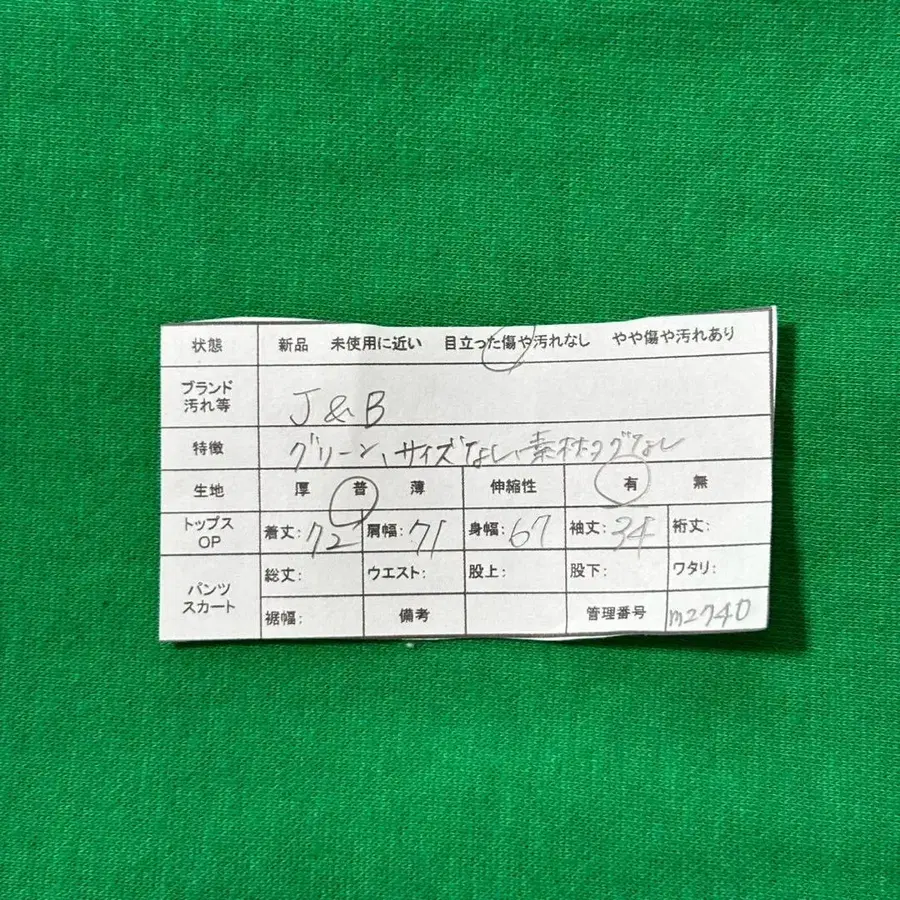 状態 新品 未使用に近い 目立った傷や汚れなし やや傷や汚れあり
ブランド
汚れ等 J&B
特徴 グリーン、サイズなし、素材タグなし
生地 厚 普 薄 伸縮性 有 無
トップス
OP 着丈:72 肩幅:71 身幅:67 袖丈:34 裄丈:
パンツ
スカート 総丈: ウエスト: 股上: 股下: ワタリ:
裾幅: 備考 管理番号 m2740